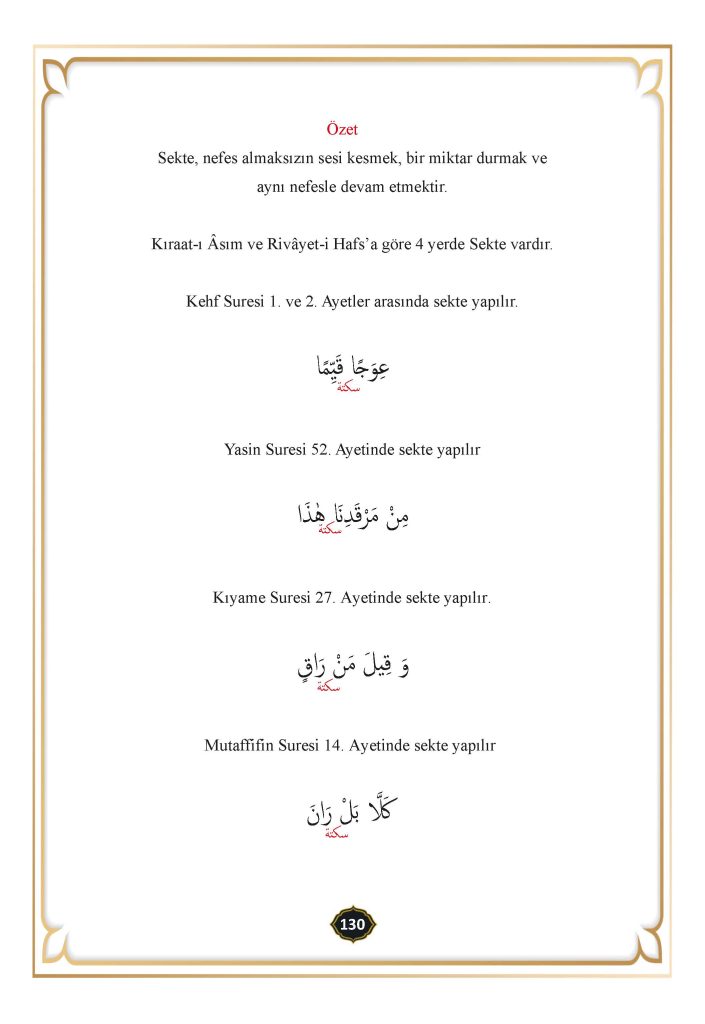 Özet
Sekte, nefes almaksızın sesi kesmek, bir miktar durmak ve
aynı nefesle devam etmektir.
Kıraat-ı Âsım ve Rivâyet-i Hafs’a göre 4 yerde Sekte vardır.
Kehf Suresi 1. ve 2. Ayetler arasında sekte yapılır.
عِوَجًا قَيِّمًا
سكتة
Yasin Suresi 52. Ayetinde sekte yapılır
مِنْ مَرْقَدِنَا هٰذَا
سكتة
Kıyame Suresi 27. Ayetinde sekte yapılır.
وَ قِيلَ مَنْ رَاقٍ
سكتة
Mutaffifin Suresi 14. Ayetinde sekte yapılır
كَلَّا بَلْ رَانَ
سكتة
130